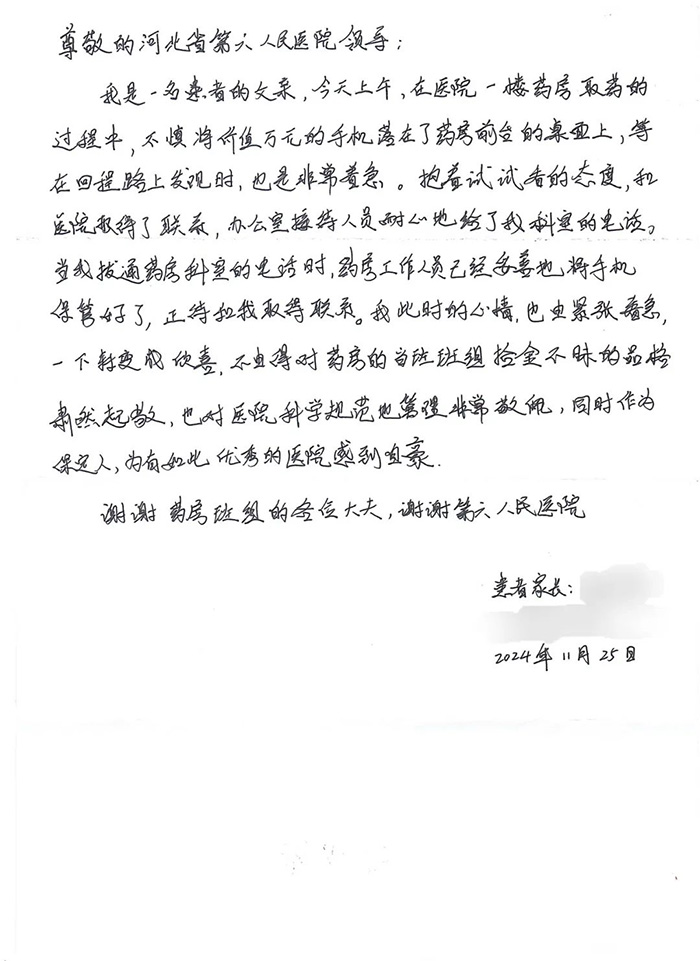 尊敬的河北省第六人民医院领导：
我是一名患者的父亲，今天上午，在医院一楼药房取药的
过程中，不慎将价值万元的手机落在了药房前台的桌面上，等
在回程路上发现时，也是非常着急。抱着试试看的态度，和
医院取得了联系，办公室接待人员耐心地给了我科室的电话。
当我拔通药房科室的电话时，药房工作人员已经妥善地将手机
保管好了，正待和我取得联系。我此时的心情，也由紧张着急，
一下转变成欣喜，不由得对药房的当班班组拾金不昧的品格
肃然起敬，也对医院科学规范地管理非常敬佩，同时作为
保定人，为有如此优秀的医院感到自豪.
谢谢药房班组的各位大夫，谢谢第六人民医院
患者家长：
2024年11月25日